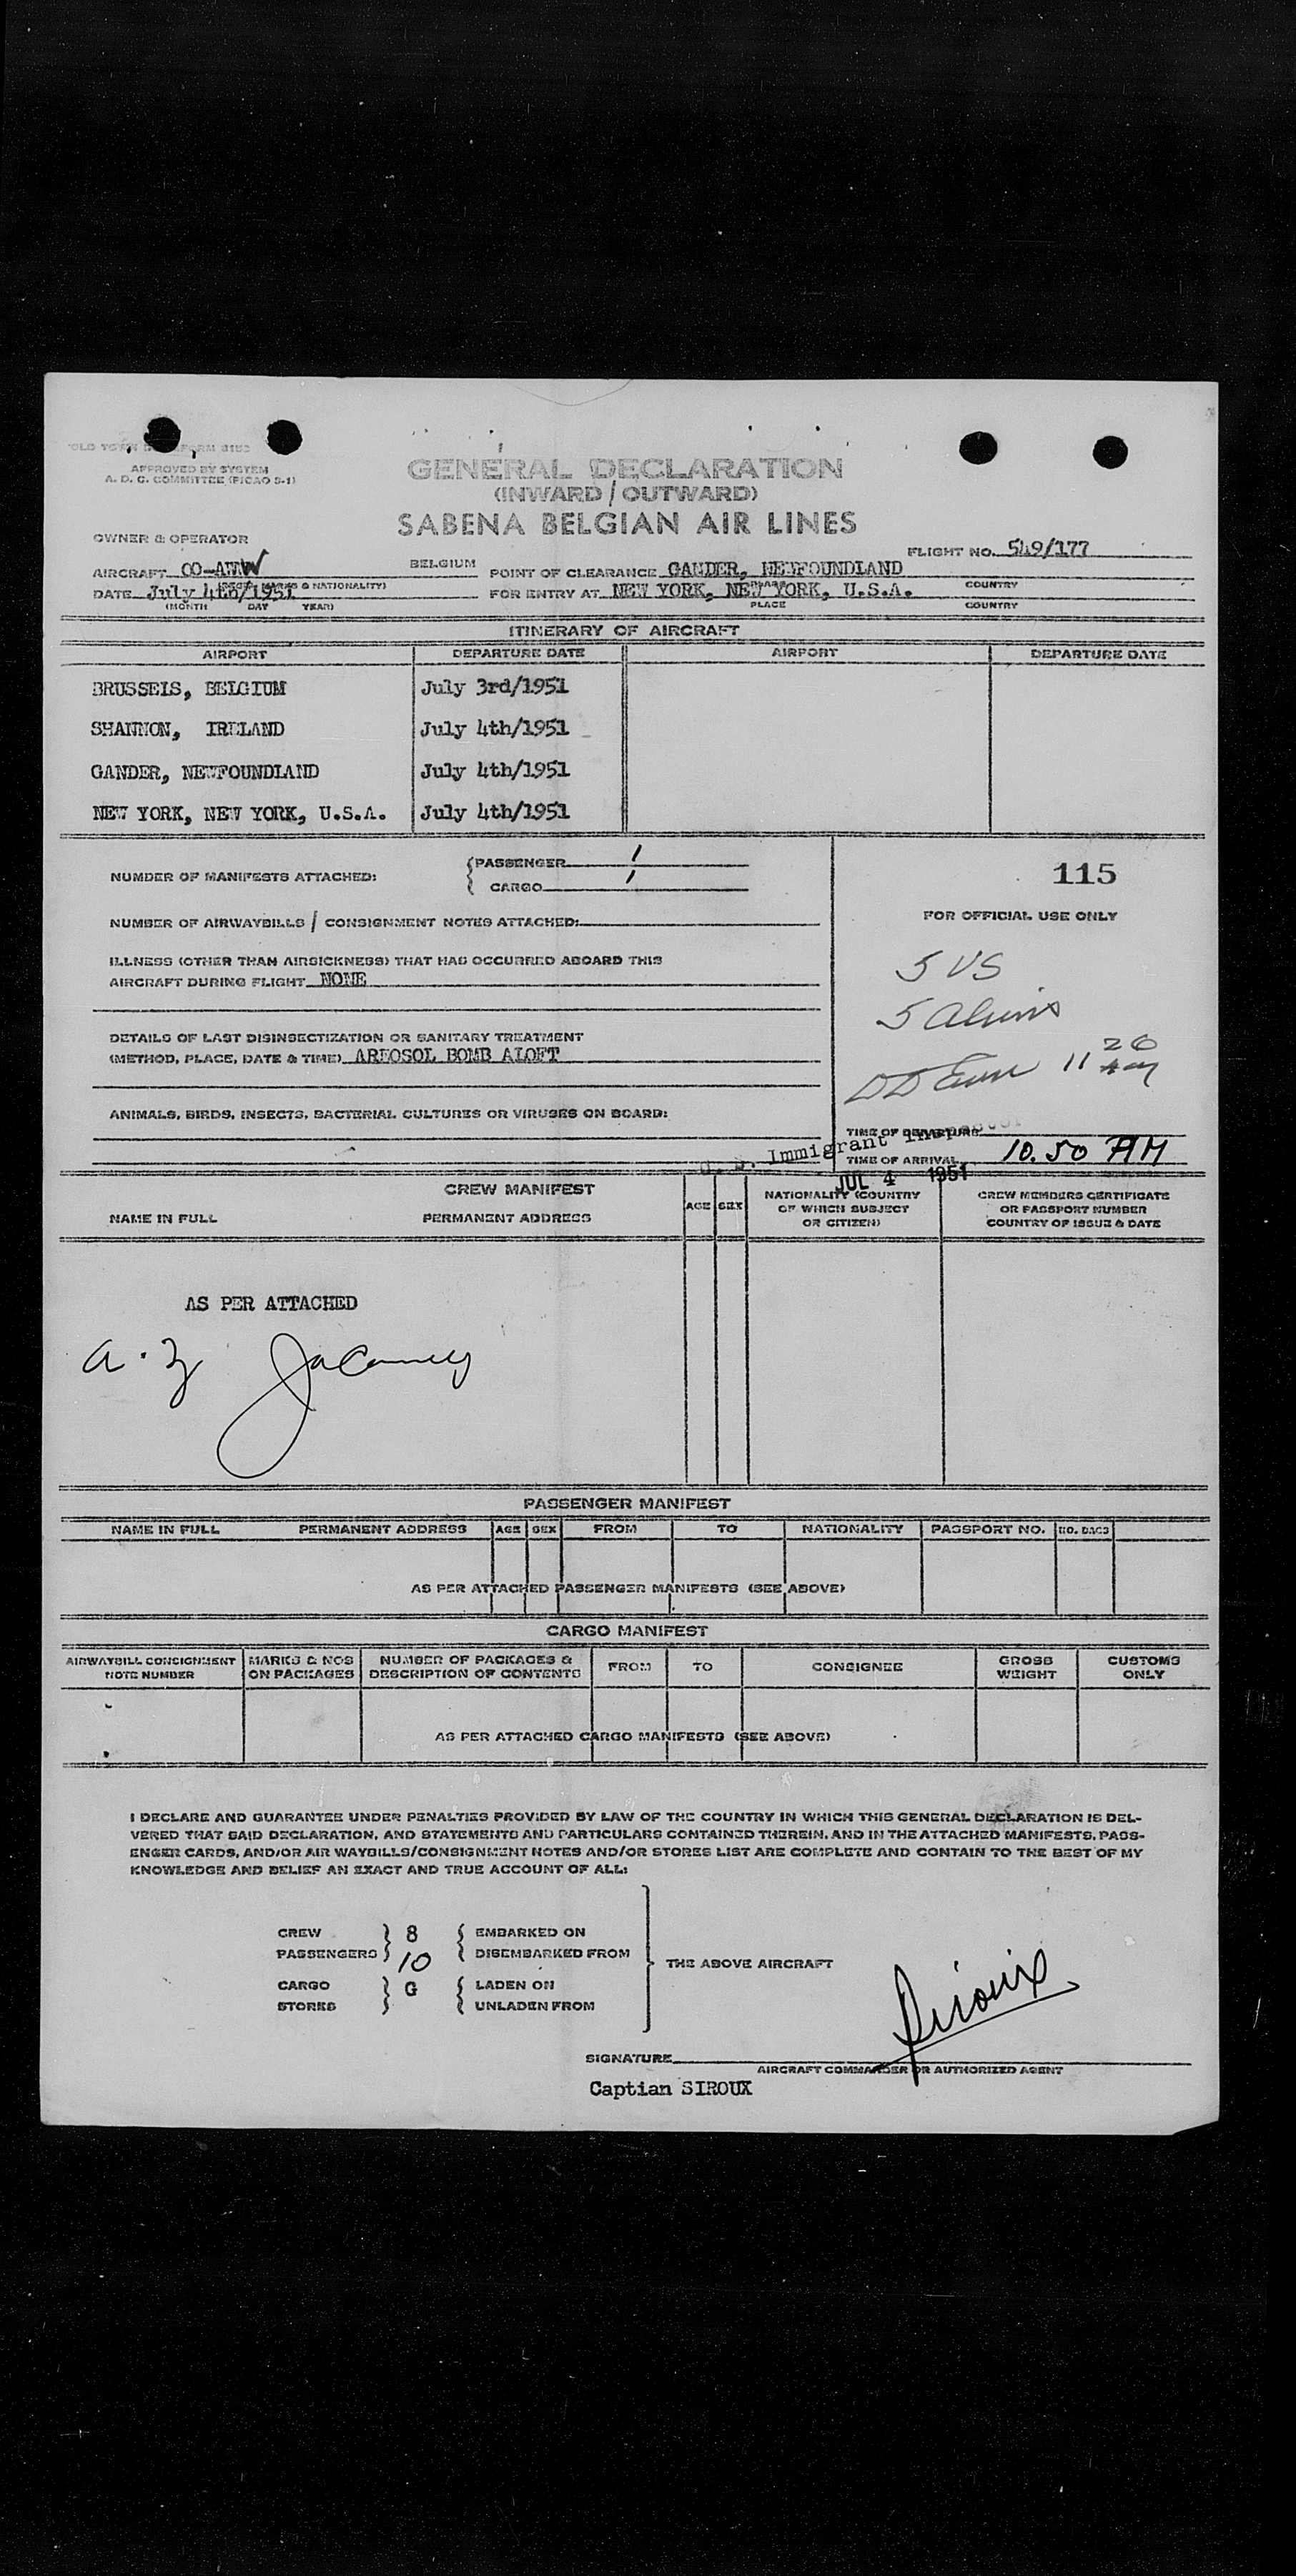 APPROVED BY SYSTEM
A. D. C. COMMITTEE (PICAO S-1)
GENERAL DECLARATION
(INWARD / OUTWARD)
SABENA BELGIAN AIR LINES
OWNER & OPERATOR
FLIGHT NO. 549/177
AIRCRAFT OO-AWW BELGIUM POINT OF CLEARANCE GANDER, NEWFOUNDLAND
MARKS & NATIONALITY) COUNTRY
DATE July 4th/1951 FOR ENTRY AT NEW YORK, NEW YORK, U.S.A.
(MONTH DAY YEAR) PLACE COUNTRY
ITINERARY OF AIRCRAFT
AIRPORT DEPARTURE DATE AIRPORT DEPARTURE DATE
BRUSSELS, BELGIUM July 3rd/1951
SHANNON, IRELAND July 4th/1951
GANDER, NEWFOUNDLAND July 4th/1951
NEW YORK, NEW YORK, U.S.A. July 4th/1951
NUMBER OF MANIFESTS ATTACHED: PASSENGER 1
CARGO 1
115
FOR OFFICIAL USE ONLY
NUMBER OF AIRWAYBILLS / CONSIGNMENT NOTES ATTACHED:
5 US
5 Aliens
ILLNESS (OTHER THAN AIRSICKNESS) THAT HAS OCCURRED ABOARD THIS
AIRCRAFT DURING FLIGHT NONE
DETAILS OF LAST DISINSECTIZATION OR SANITARY TREATMENT
(METHOD, PLACE, DATE & TIME) AREOSOL BOMB ALOFT
11 20
ANIMALS, BIRDS, INSECTS, BACTERIAL CULTURES OR VIRUSES ON BOARD:
TIME OF DEPARTURE
U. S. Immigrant Inspector
TIME OF ARRIVAL 10.50 AM
JUL 4 1951
CREW MANIFEST
NAME IN FULL PERMANENT ADDRESS AGE SEX NATIONALITY (COUNTRY OF WHICH SUBJECT OR CITIZEN) CREW MEMBERS CERTIFICATE OR PASSPORT NUMBER COUNTRY OF ISSUE & DATE
AS PER ATTACHED
PASSENGER MANIFEST
NAME IN FULL PERMANENT ADDRESS AGE SEX FROM TO NATIONALITY PASSPORT NO. NO. BAGS
AS PER ATTACHED PASSENGER MANIFESTS (SEE ABOVE)
CARGO MANIFEST
AIRWAYBILL CONSIGNMENT NOTE NUMBER MARKS & NOS ON PACKAGES NUMBER OF PACKAGES & DESCRIPTION OF CONTENTS FROM TO CONSIGNEE GROSS WEIGHT CUSTOMS ONLY
AS PER ATTACHED CARGO MANIFESTS (SEE ABOVE)
I DECLARE AND GUARANTEE UNDER PENALTIES PROVIDED BY LAW OF THE COUNTRY IN WHICH THIS GENERAL DECLARATION IS DEL-
VERED THAT SAID DECLARATION, AND STATEMENTS AND PARTICULARS CONTAINED THEREIN, AND IN THE ATTACHED MANIFESTS, PASS-
ENGER CARDS, AND/OR AIR WAYBILLS/CONSIGNMENT NOTES AND/OR STORES LIST ARE COMPLETE AND CONTAIN TO THE BEST OF MY
KNOWLEDGE AND BELIEF AN EXACT AND TRUE ACCOUNT OF ALL:
CREW 8 EMBARKED ON
PASSENGERS 10 DISEMBARKED FROM
THE ABOVE AIRCRAFT
CARGO G LADEN ON
STORES UNLADEN FROM
Siroux
SIGNATURE
AIRCRAFT COMMANDER OR AUTHORIZED AGENT
Captian SIROUX